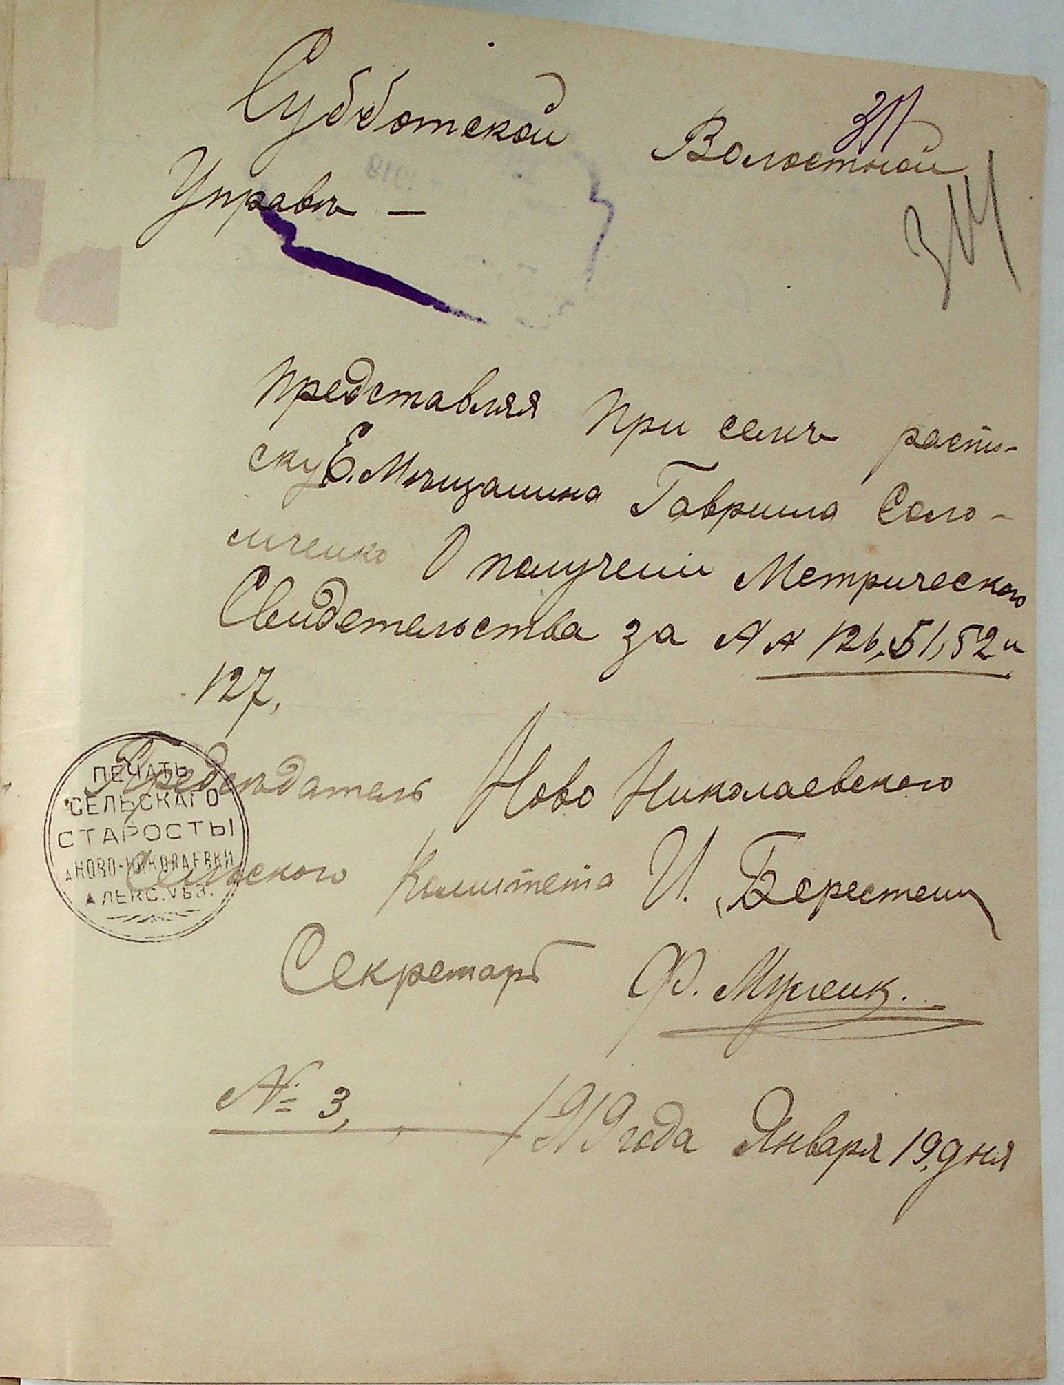 311
314
Субботской Волостной
Управѣ —
Представляя При семъ распи-
ску Е. Мѣщанина Гаврила Соло-
мченко О получении Метрического
Свидетельства за № № 126, 51, 52 и
127,
Председатель Ново Николаевского
Сельского Комитета И. Берестен
Секретарь Ф.
№ 3, 1919 года Января 19, дня
ПЕЧАТЬ
СЕЛЬСКАГО
СТАРОСТЫ
НОВО-НИКОЛАЕВКИ
АЛЕКС. УѢЗ.